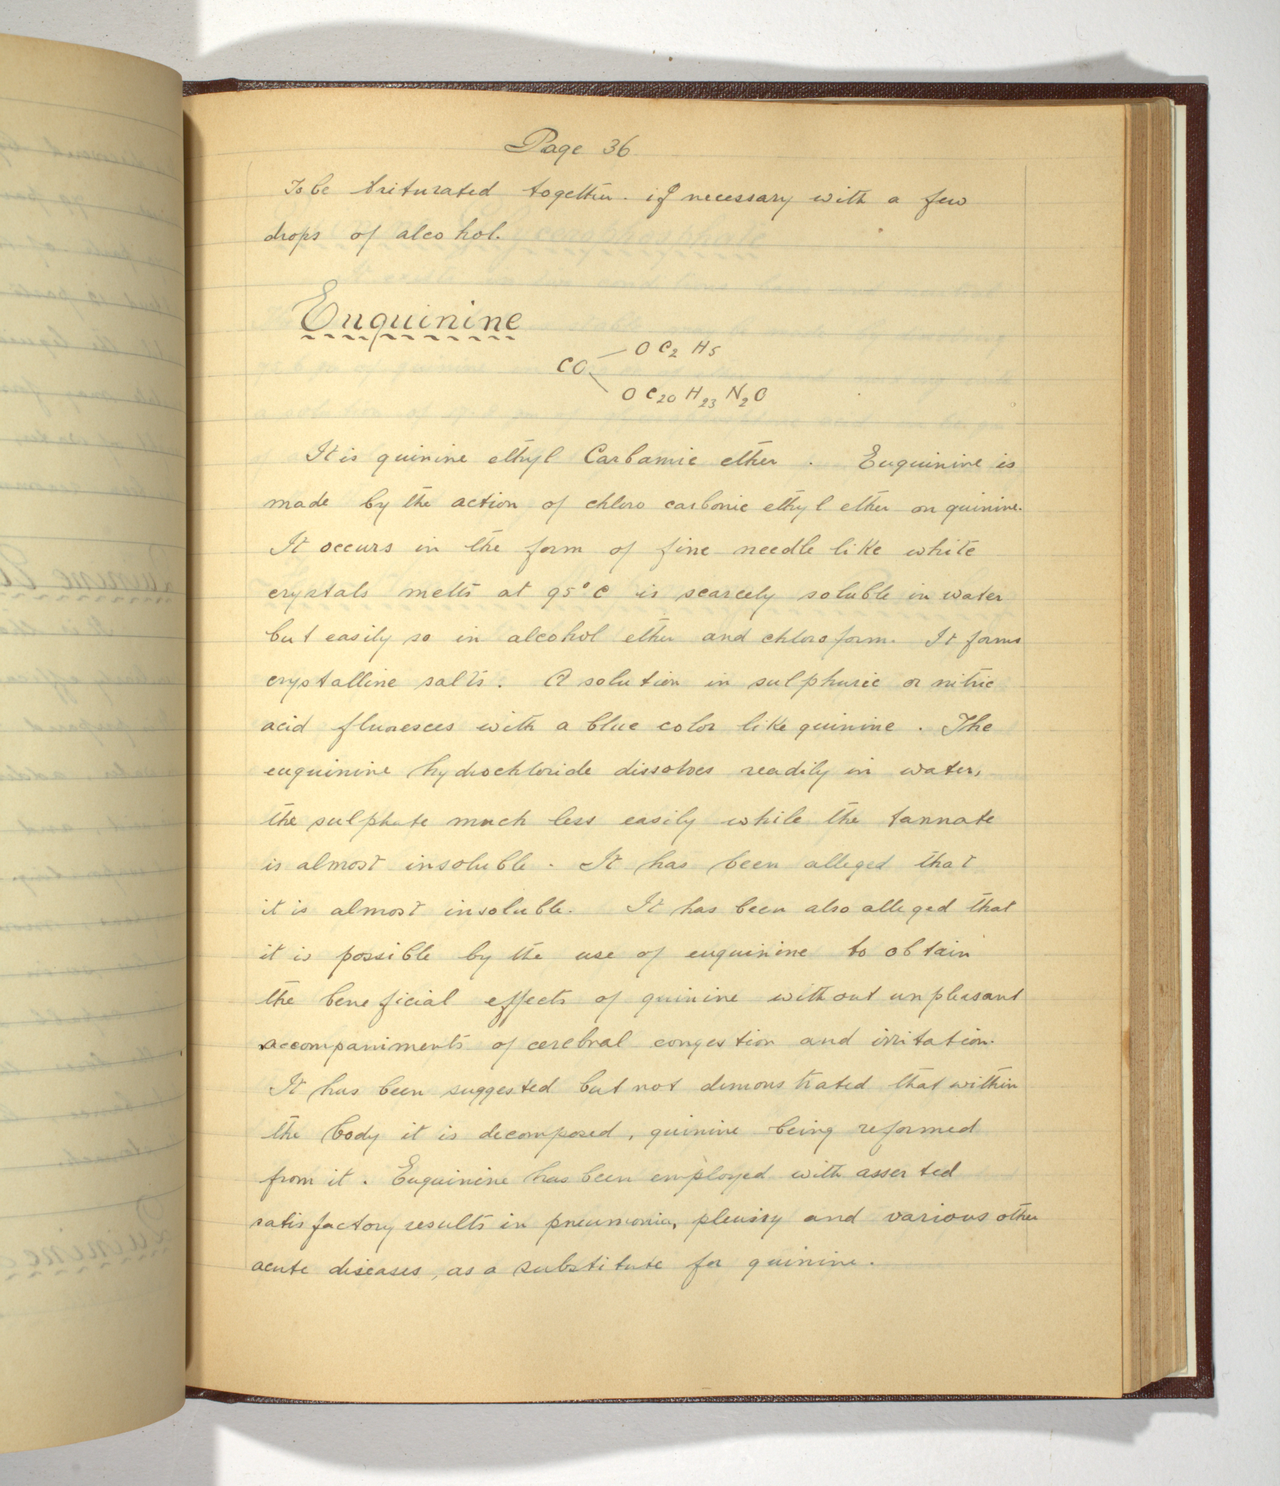 Page 36
To be triturated together. if necessary with a few
drops of alcohol.
Euquinine
OC2 H5
CO
OC20 H23 N2O
It is quinine ethyl Carbamic ether . Euquinine is
made by the action of chloro carbonic ethyl ether on quinine.
It occurs in the form of fine needle like white
crystals melts at 95°C is scarcely soluble in water
but easily so in alcohol ether and chloroform. It forms
crystalline salts. A solution in sulphuric or nitric
acid fluoresces with a blue color like quinine . The
euquinine hydrochloride dissolves readily in water,
the sulphate much less easily while the tannate
is almost insoluble. It has been alleged that
it is almost insoluble. It has been also alleged that
it is possible by the use of euquinine to obtain
the beneficial effects of quinine without unpleasant
accompaniments of cerebral congestion and irritation.
It has been suggested but not demonstrated that within
the body it is decomposed, quinine being reformed
from it. Euquinine has been employed with asserted
satisfactory results in pneumonia, pleurisy and various other
acute diseases, as a substitute for quinine.